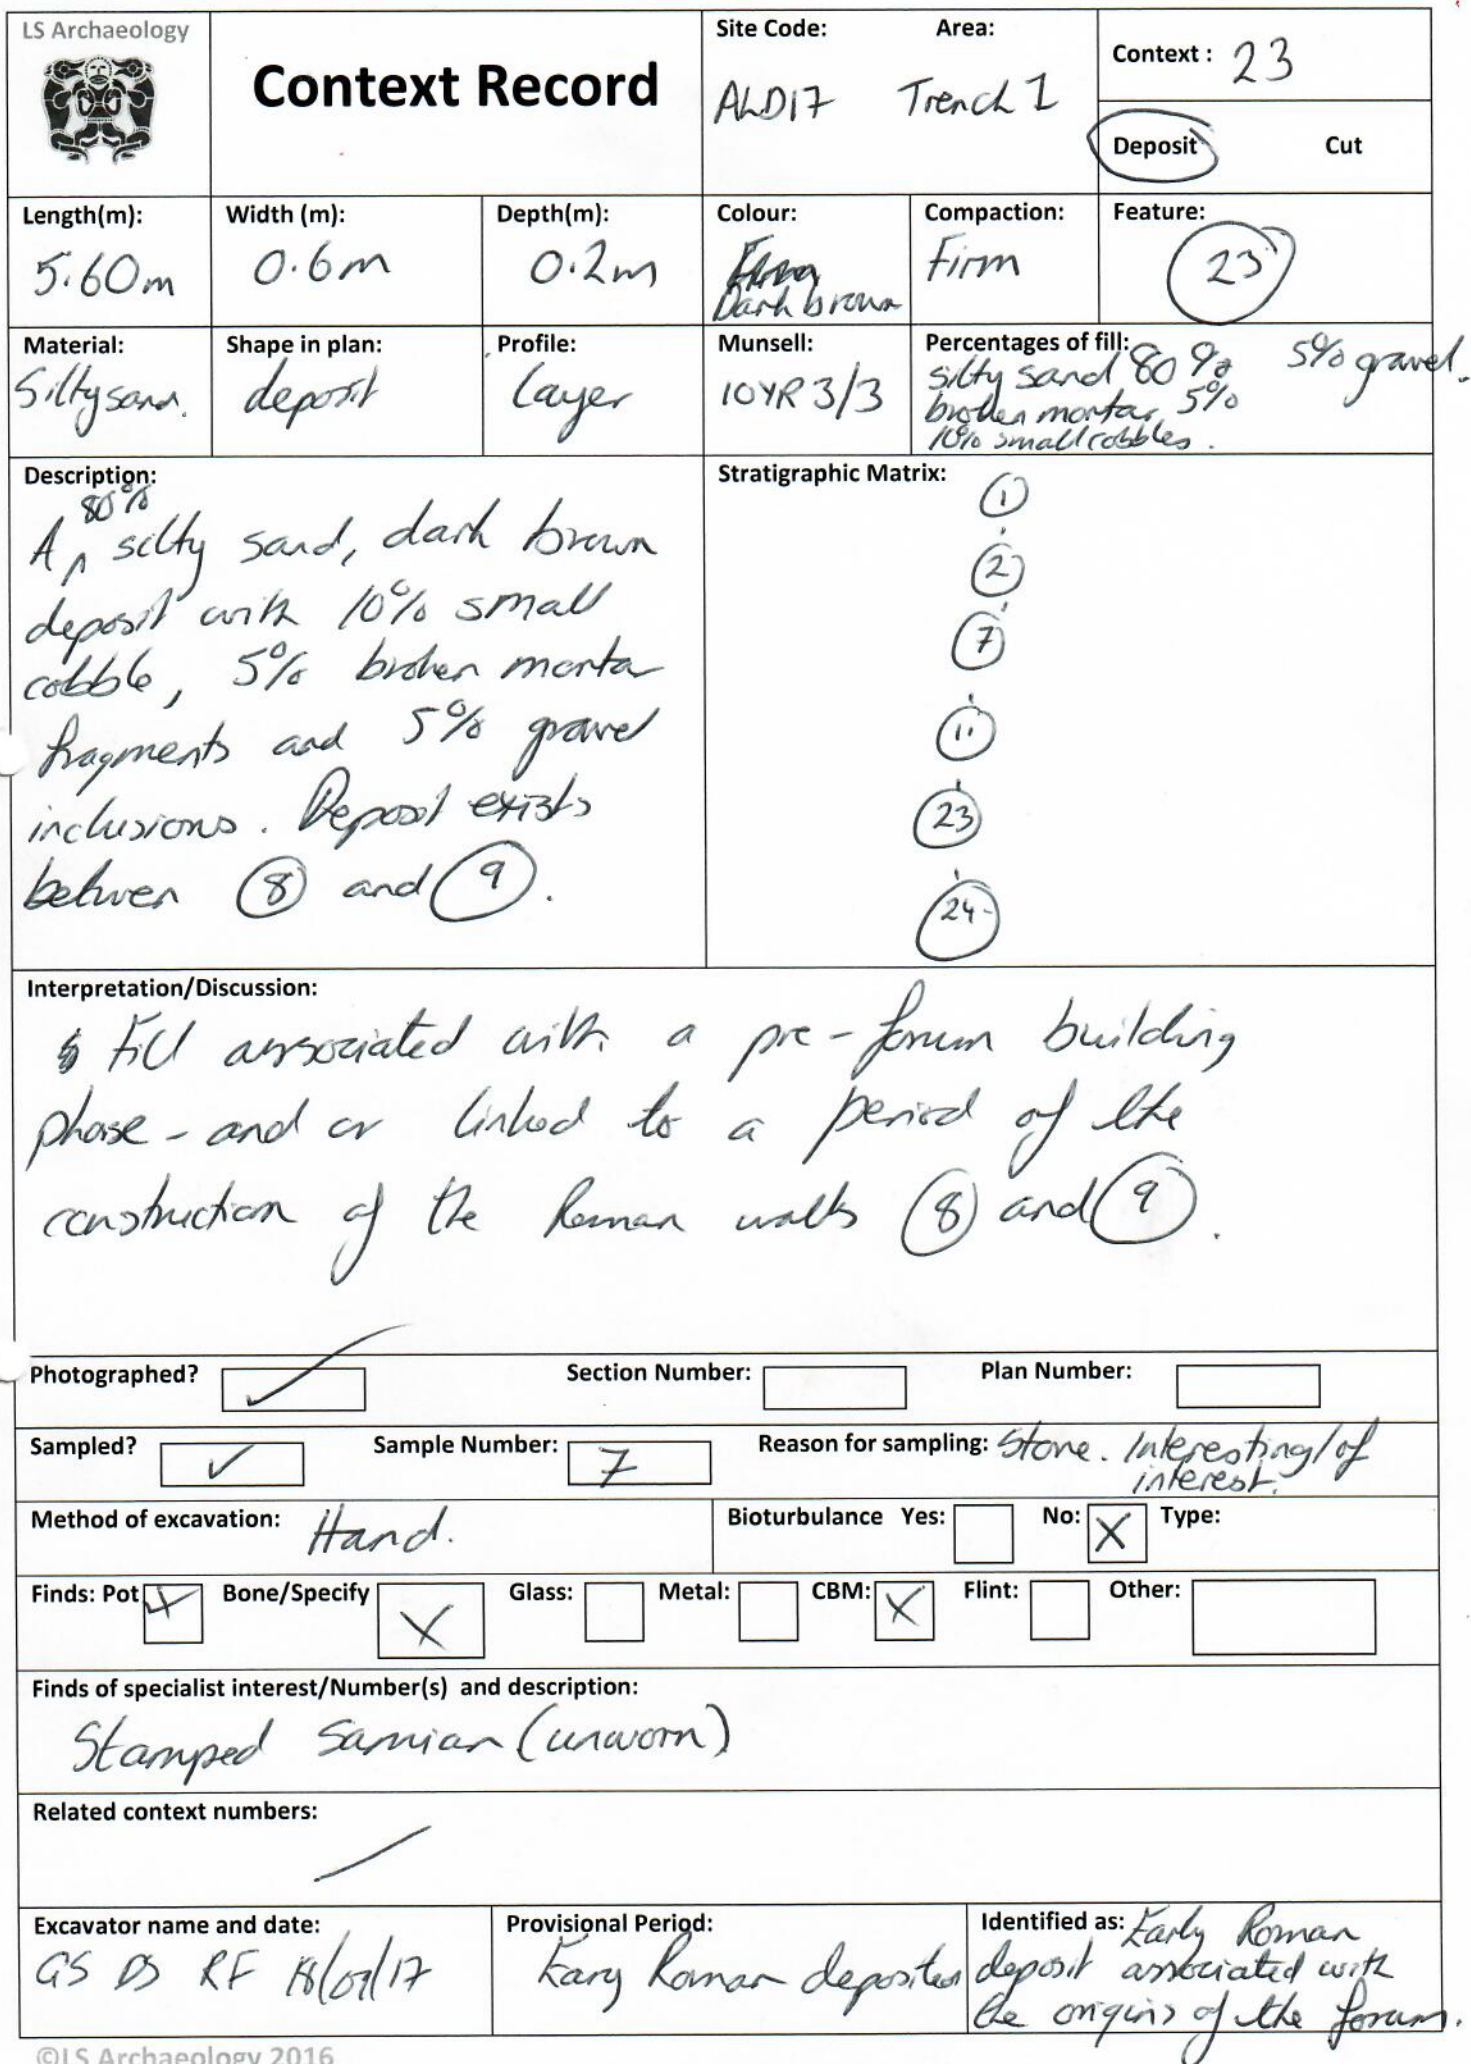 LS Archaeology
Context Record
Site Code:
ALD17
Area:
Trench 1
Context : 23
Deposit Cut
Length(m):
5.60m
Width (m):
0.6m
Depth(m):
0.2m
Colour:
Firm
Dark brown
Compaction:
Firm
Feature:
23
Material:
Silty sand.
Shape in plan:
deposit
Profile:
Layer
Munsell:
10YR 3/3
Percentages of fill:
silty sand 80% 5% gravel.
broken mortar 5%
10% small cobbles.
Description:
80%
A ^ silty sand, dark brown
deposit with 10% small
cobble, 5% broken mortar
fragments and 5% gravel
inclusions. Deposit exists
between 8 and 9.
Stratigraphic Matrix:
1
2
7
11
23
24
Interpretation/Discussion:
Fill associated with a pre-forum building
phase - and or linked to a period of the
construction of the Roman walls 8 and 9.
Photographed? ✓ Section Number: Plan Number:
Sampled? ✓ Sample Number: 7 Reason for sampling: Stone. Interesting/of
interest.
Method of excavation: Hand.
Bioturbulance Yes: No: X Type:
Finds: Pot X Bone/Specify X Glass: Metal: CBM: X Flint: Other:
Finds of specialist interest/Number(s) and description:
Stamped Samian (unworn)
Related context numbers:
/
Excavator name and date:
GS DS RF 18/07/17
Provisional Period:
Eary Roman
Identified as: Early Roman
deposit associated with
the origins of the forum.
©LS Archaeology 2016